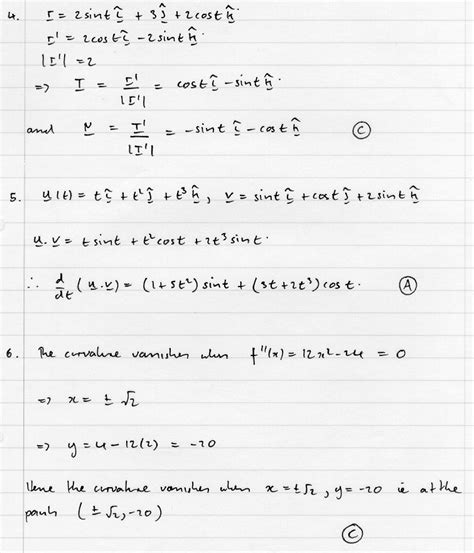 4. r = 2 sint î + 3ĵ + 2cost k̂.
r' = 2cost î - 2sint k̂.
|r'| = 2
=> T = r'/|r'| = cost î - sint k̂.
and N = T'/|T'| = -sint î - cost k̂ (C)
5. u(t) = t î + t² ĵ + t³ k̂, v = sint î + cost ĵ + 2sint k̂
u.v = t sint + t² cost + 2t³ sint.
∴ d/dt (u.v) = (1+5t²) sint + (3t+2t³) cost. (A)
6. The curvature vanishes when f''(x) = 12x² - 24 = 0
=> x = ± √2
=> y = 4 - 12(2) = -20
Hence the curvature vanishes when x = ±√2, y = -20 ie at the
points (± √2, -20)
(C)